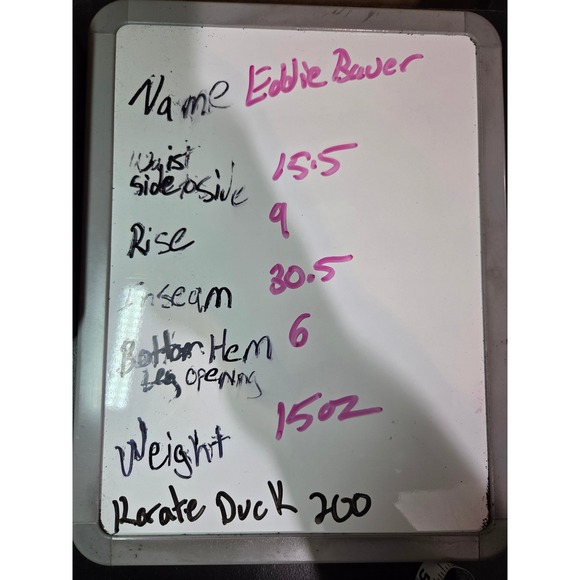 Name Eddie Bauer
Waist 15.5
side to side
Rise 9
Inseam 30.5
Bottom Hem 6
Leg opening
Weight 15oz
Karate Duck 200